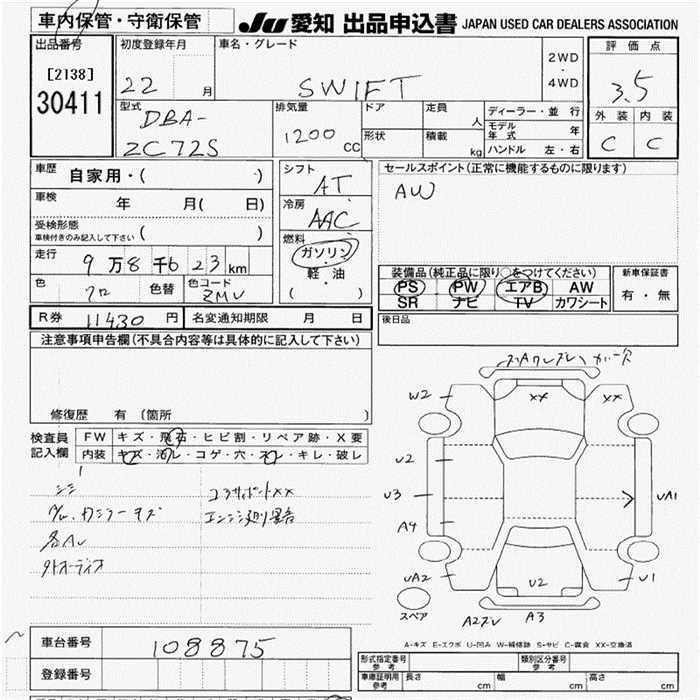 車内保管・守衛保管
JU 愛知 出品申込書 JAPAN USED CAR DEALERS ASSOCIATION
出品番号 初度登録年月 車名・グレード 2WD ・ 4WD 評価点
[2138]
30411 22 月 SWIFT 3.5
型式 DBA- ZC72S 排気量 1200 cc ドア 定員 人 ディーラー・並行
形状 積載 kg モデル年式 年
ハンドル 左・右
外装 内装
C C
車歴 自家用・( ・)
車検 年 月( 日)
受検形態
車検付きのみ記入して下さい ( )
走行 9万8千623km
色 クロ 色替 色コード ZMV
シフト AT
冷房 AAC
燃料 ガソリン・軽・油
( )
セールスポイント(正常に機能するものに限ります)
AW
装備品(純正品に限り○をつけてください) 新車保証書
PS PW エアB AW 有・無
SR ナビ TV カワシート
R券 11430 円 名変通知期限 月 日
後日品
注意事項申告欄(不具合内容等は具体的に記入して下さい)
修復歴 有 (箇所 )
検査員 FW キズ・飛石・ヒビ割・リペア跡・X要
記入欄 内装 キズ・汚レ・コゲ・穴・スレ・キレ・破レ
コアサポートXX
各AU
外オーディオ
W2 XX XX
U2
U3 UA1
A4
UA2 U2 U1
スペア A3
A-キズ E-エクボ U-凹み W-補修跡 S-サビ C-腐食 XX-交換済
車台番号 108875
登録番号
形式指定番号 参考 類別区分番号 参考
車庫証明用 参考 長さ cm 幅 cm 高さ cm